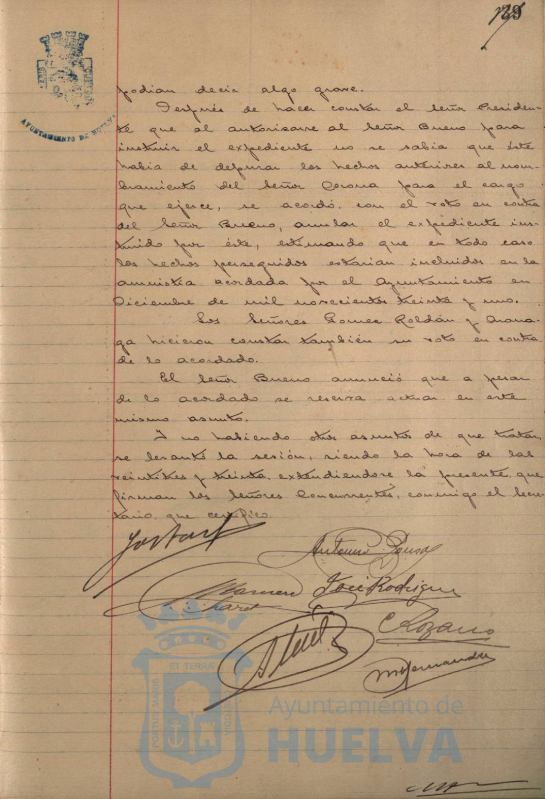 189
AYUNTAMIENTO DE HUELVA
podian decir algo grave.
Después de hacer constar el Señor Presiden-
te que al autorizarse al Señor Bueno para
instruir el expediente no se sabia que éste
habia de depurar los hechos anteriores al nom-
bramiento del Señor Corona para el cargo
que ejerce, se acordó, con el voto en contra
del Señor Bueno, anular el expediente ins-
truido por éste, estimando que en todo caso
los hechos perseguidos estarian incluidos en la
amnistia acordada por el Ayuntamiento en
Diciembre de mil novecientos treinta y uno.
Los Señores Gomez Roldán y
hicieron constar también su voto en contra
de lo acordado.
El Señor Bueno anunció que a pesar
de lo acordado se reserva actuar en este
mismo asunto.
Y no habiendo otros asuntos de que tratar,
se levantó la sesión, siendo la hora de las
veintitres y treinta, extendiendose la presente, que
firman los Señores Concurrentes, conmigo el Secre-
tario, que certifico.
Antonio
José Rodriguez
Rozano
M Hernandez
PORTUS MARIS ET TERRAE CUSTODIA
Ayuntamiento de
HUELVA